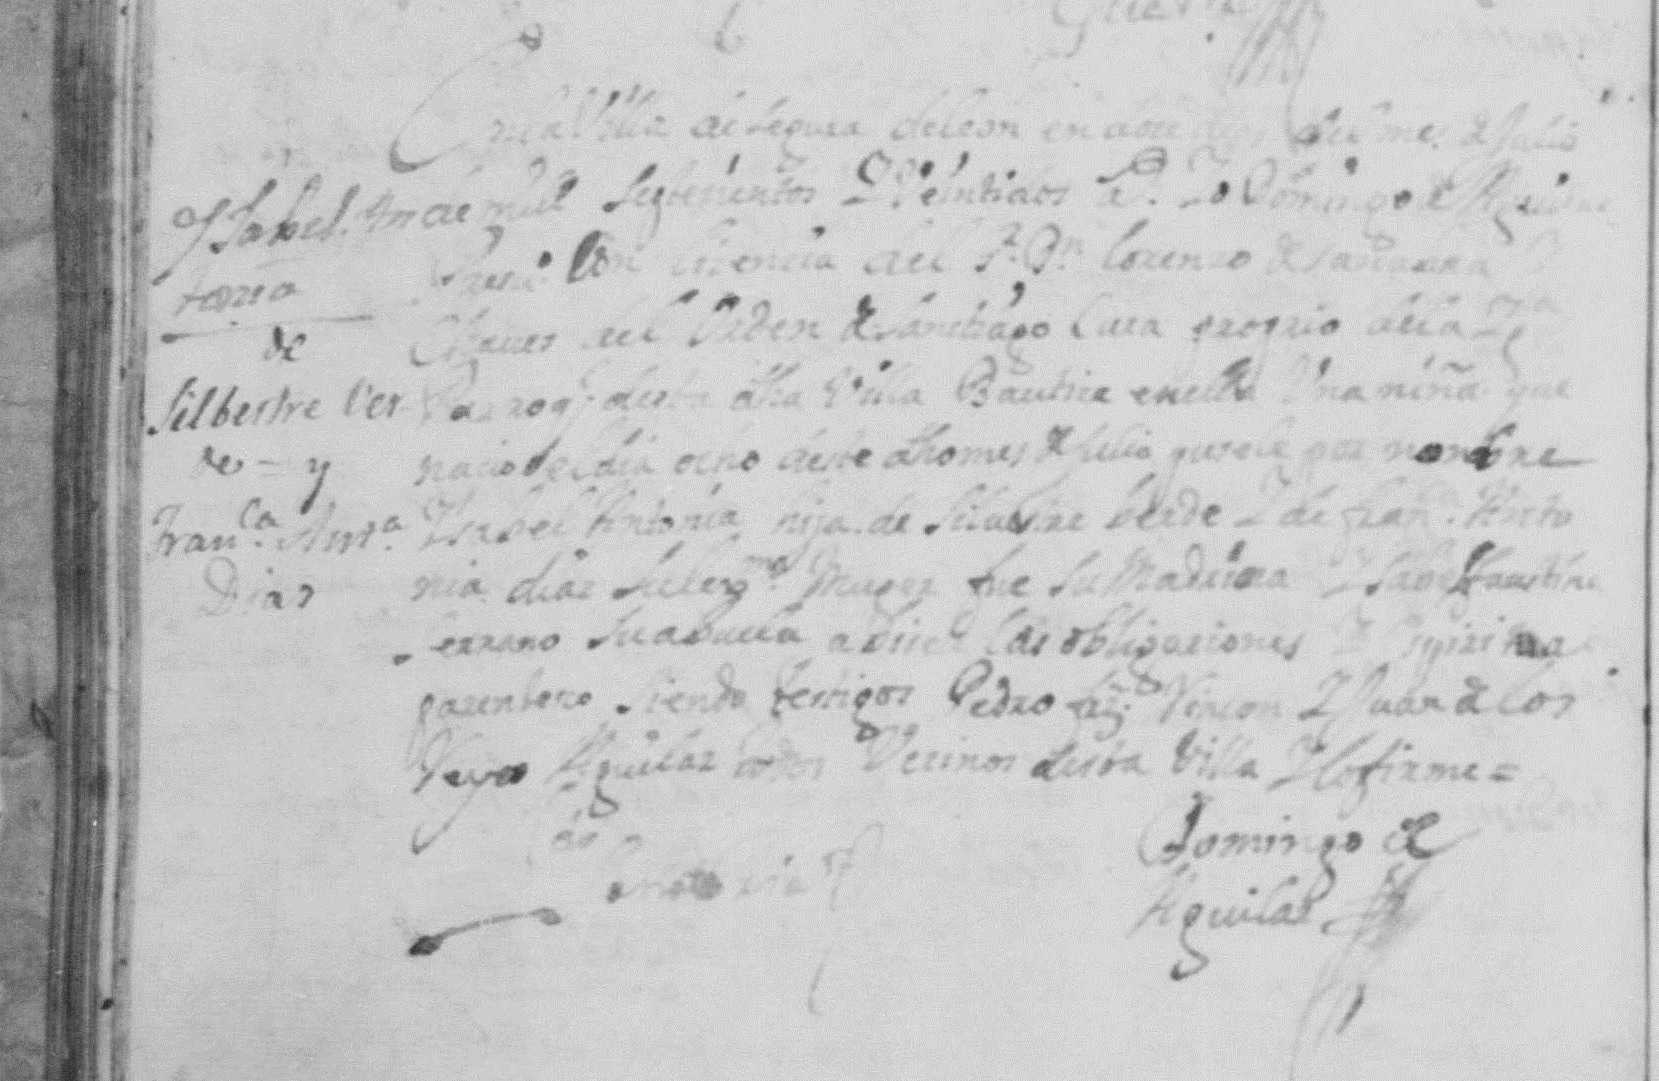 En la Villa de Segura de leon en doce dias del mes de Julio
de mil Setezientos I Veintidos As. Io Domingo de Aguilar
Presu.ro Con licencia del Sr. Dn. Lorenzo
Chaues del Orden de Santiago Cura proprio de la Ygla
Parroql. desta dha Villa Bautize en ella Una niña que
nacio el dia ocho deste dho mes de Julio pusele por nombre
Isabel Antonia hija de Siluestre berde I de franca. Anto
nia diaz su legma. Muger fue Su Madrina Isabel faustina
Serrano Su abuela adverti las obligaciones I Espiritual
parentesco Siendo testigos Pedro frz. Vincon I Juan de los
Reyes Aguilar todos Vezinos desta Villa I lo firme =
Domingo de
Aguilar
Ysabel An
tonia
de
Silbestre Ver
de = y
Franca. Anta.
Dias